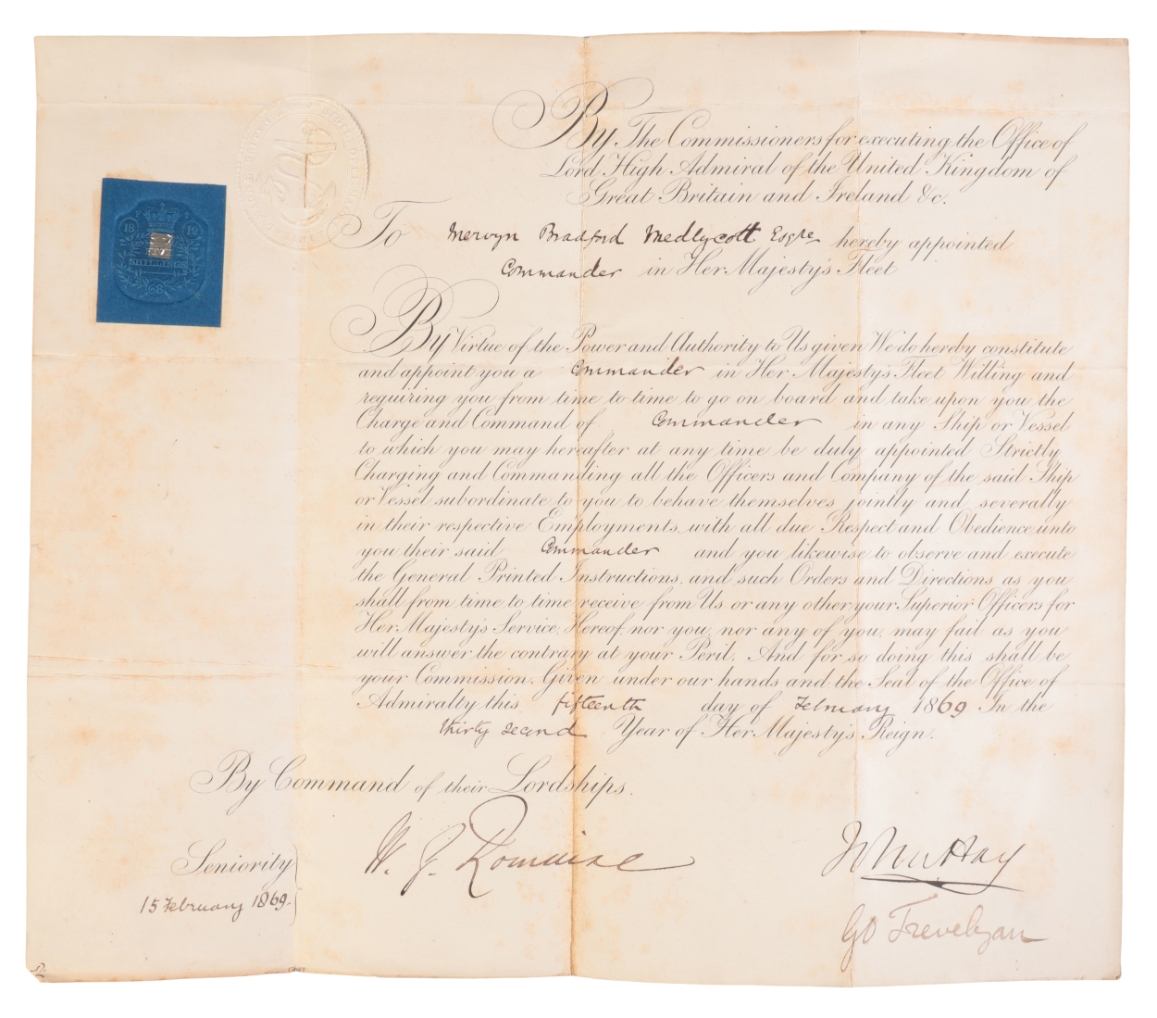 By The Commissioners for executing the Office of
Lord High Admiral of the United Kingdom of
Great Britain and Ireland &c.
To Mervyn Bradford Medlycott Esqre hereby appointed
Commander in Her Majesty's Fleet
By Virtue of the Power and Authority to Us given We do hereby constitute
and appoint you a Commander in Her Majesty's Fleet Willing and
requiring you from time to time to go on board and take upon you the
Charge and Command of Commander in any Ship or Vessel
to which you may hereafter at any time be duly appointed Strictly
Charging and Commanding all the Officers and Company of the said Ship
or Vessel subordinate to you to behave themselves jointly and severally
in their respective Employments with all due Respect and Obedience unto
you their said Commander and you likewise to observe and execute
the General Printed Instructions and such Orders and Directions as you
shall from time to time receive from Us or any other your Superior Officers for
Her Majesty's Service. Hereof nor you nor any of you may fail as you
will answer the contrary at your Peril. And for so doing this shall be
your Commission. Given under our hands and the Seal of the Office of
Admiralty this fifteenth day of February 1869 In the
thirty second Year of Her Majesty's Reign.
By Command of their Lordships.
Seniority
15 February 1869.
W. G. Romaine
John Hay
GO Trevelyan
SHILLING